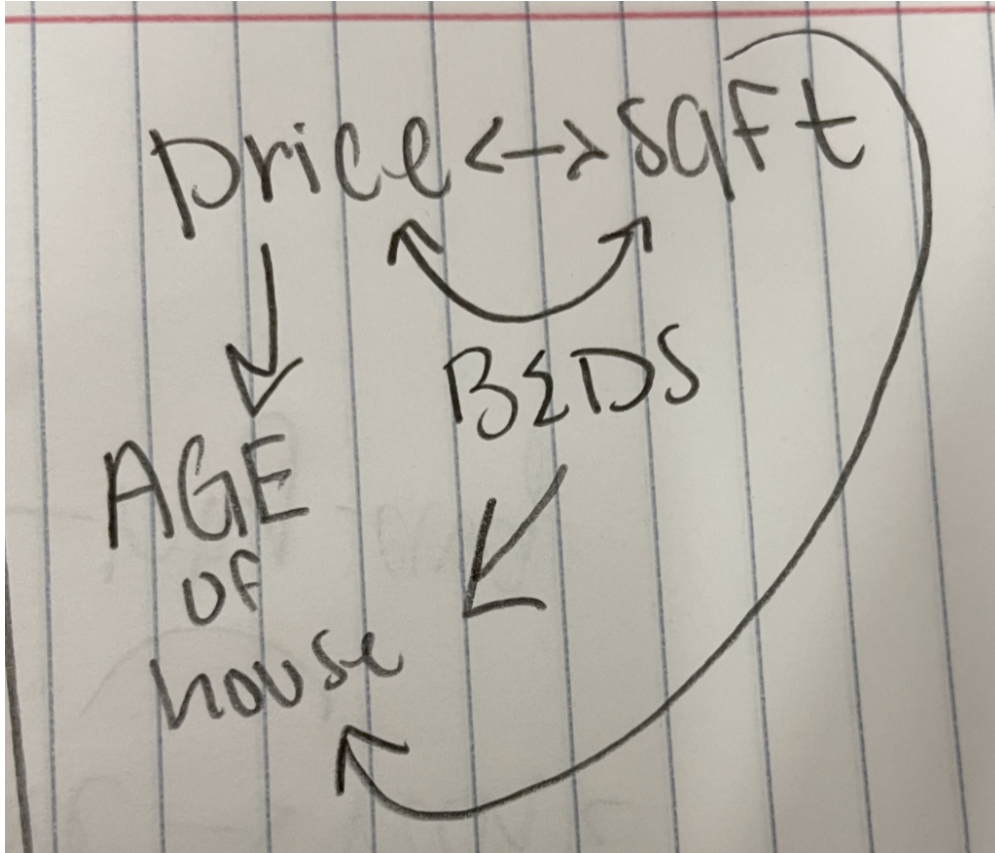 price <-> sqft
BEDS
AGE
OF
house